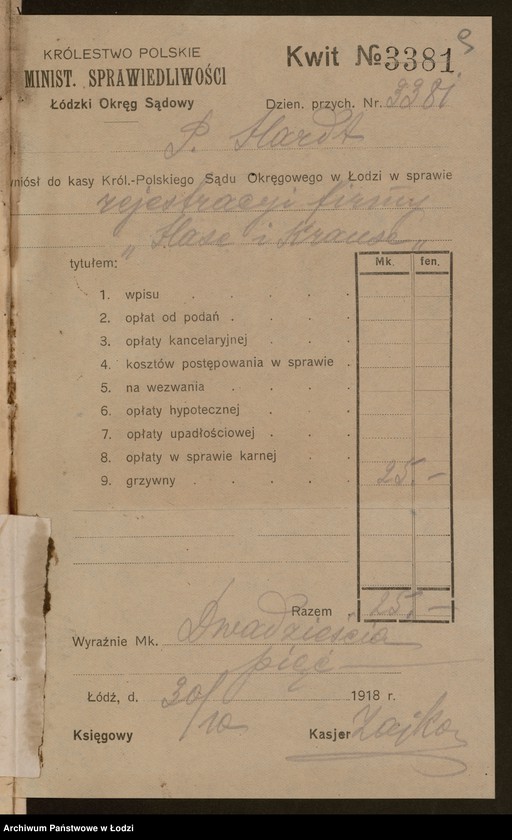 9
KRÓLESTWO POLSKIE
MINIST. SPRAWIEDLIWOŚCI
Łódzki Okręg Sądowy
Kwit № 3381
Dzien. przych. Nr. 3381
P. Hardt
wniósł do kasy Król.-Polskiego Sądu Okręgowego w Łodzi w sprawie
rejestracyi firmy
„Hase i Krause„
tytułem:
Mk. fen.
1. wpisu . . . . .
2. opłat od podań . . . .
3. opłaty kancelaryjnej . . .
4. kosztów postępowania w sprawie .
5. na wezwania . . . .
6. opłaty hypotecznej . . .
7. opłaty upadłościowej . . .
8. opłaty w sprawie karnej . .
9. grzywny . . . . . 25.—
Razem . 25.—
Wyraźnie Mk. Dwadzieścia
pięć
Łódź, d. 30/10 1918 r.
Księgowy Kasjer Zajko
Archiwum Państwowe w Łodzi